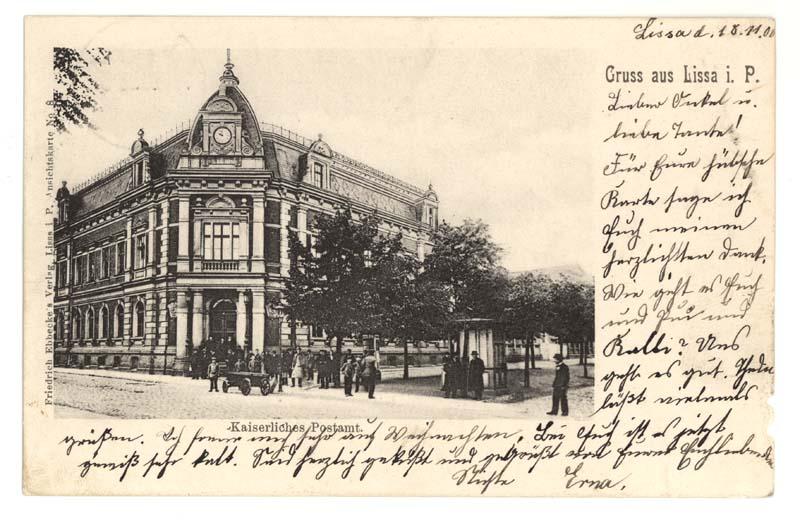 Lissa d. 18.11.00
Gruss aus Lissa i. P.
Lieber Onkel u.
liebe Tante!
Für Eure hübsche
Karte sage ich
Euch meinen
herzlichsten Dank.
Wie geht es Euch
und und
Kalli? Uns
geht es gut.
läßt vielmals
grüßen. Ich freue mich sehr auf Weihnachten. Bei Euch ist es jetzt
gewiß sehr kalt. Seid herzlich geküßt und gegrüßt von Eurer Euch liebenden
Nichte Erna.
Kaiserliches Postamt.
Friedrich Ebbecke's Verlag, Lissa i. P. Ansichtskarte No. 8.